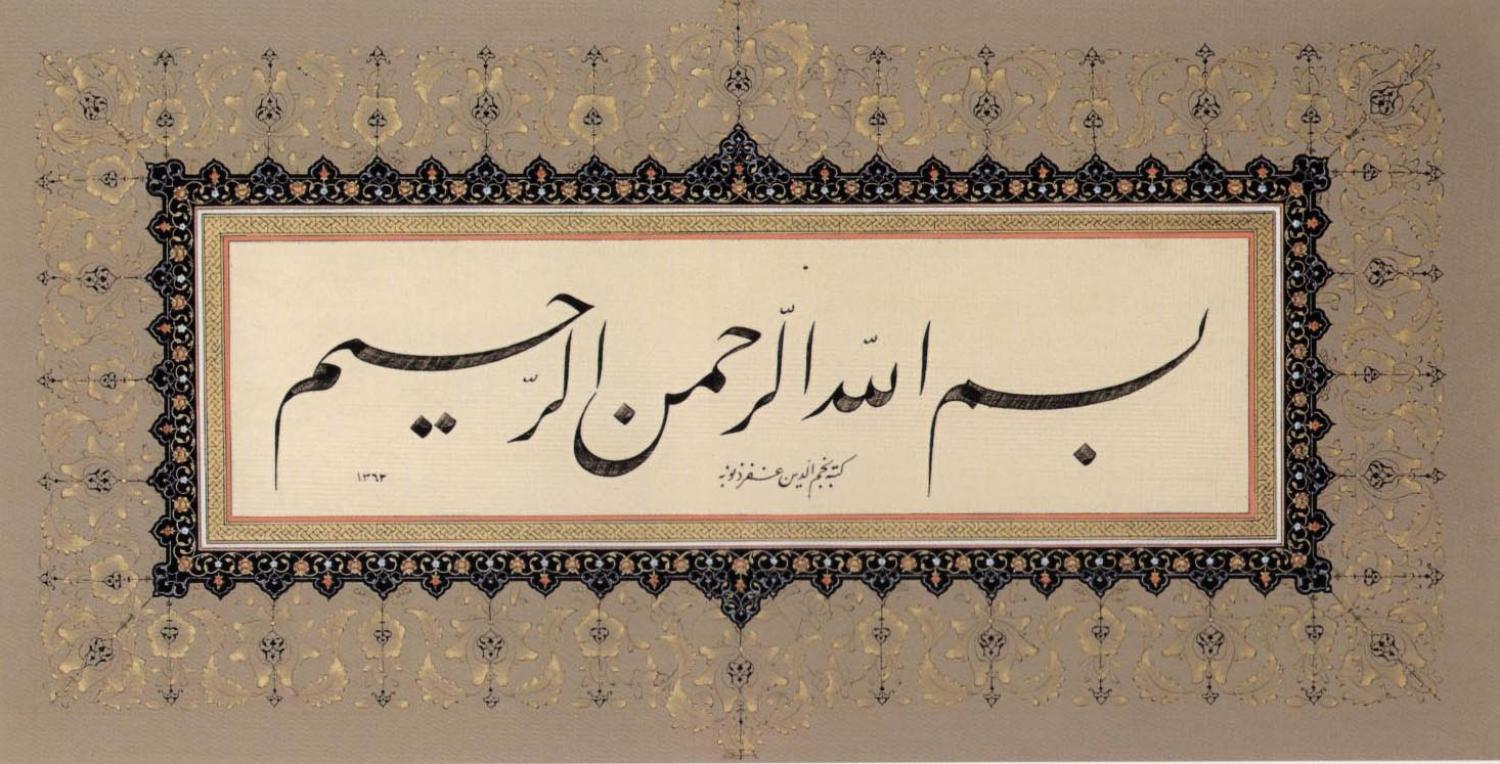 بسم الله الرّحمن الرّحیم
کتبه نجم الدین غفر ذنوبه
۱۳۶۳